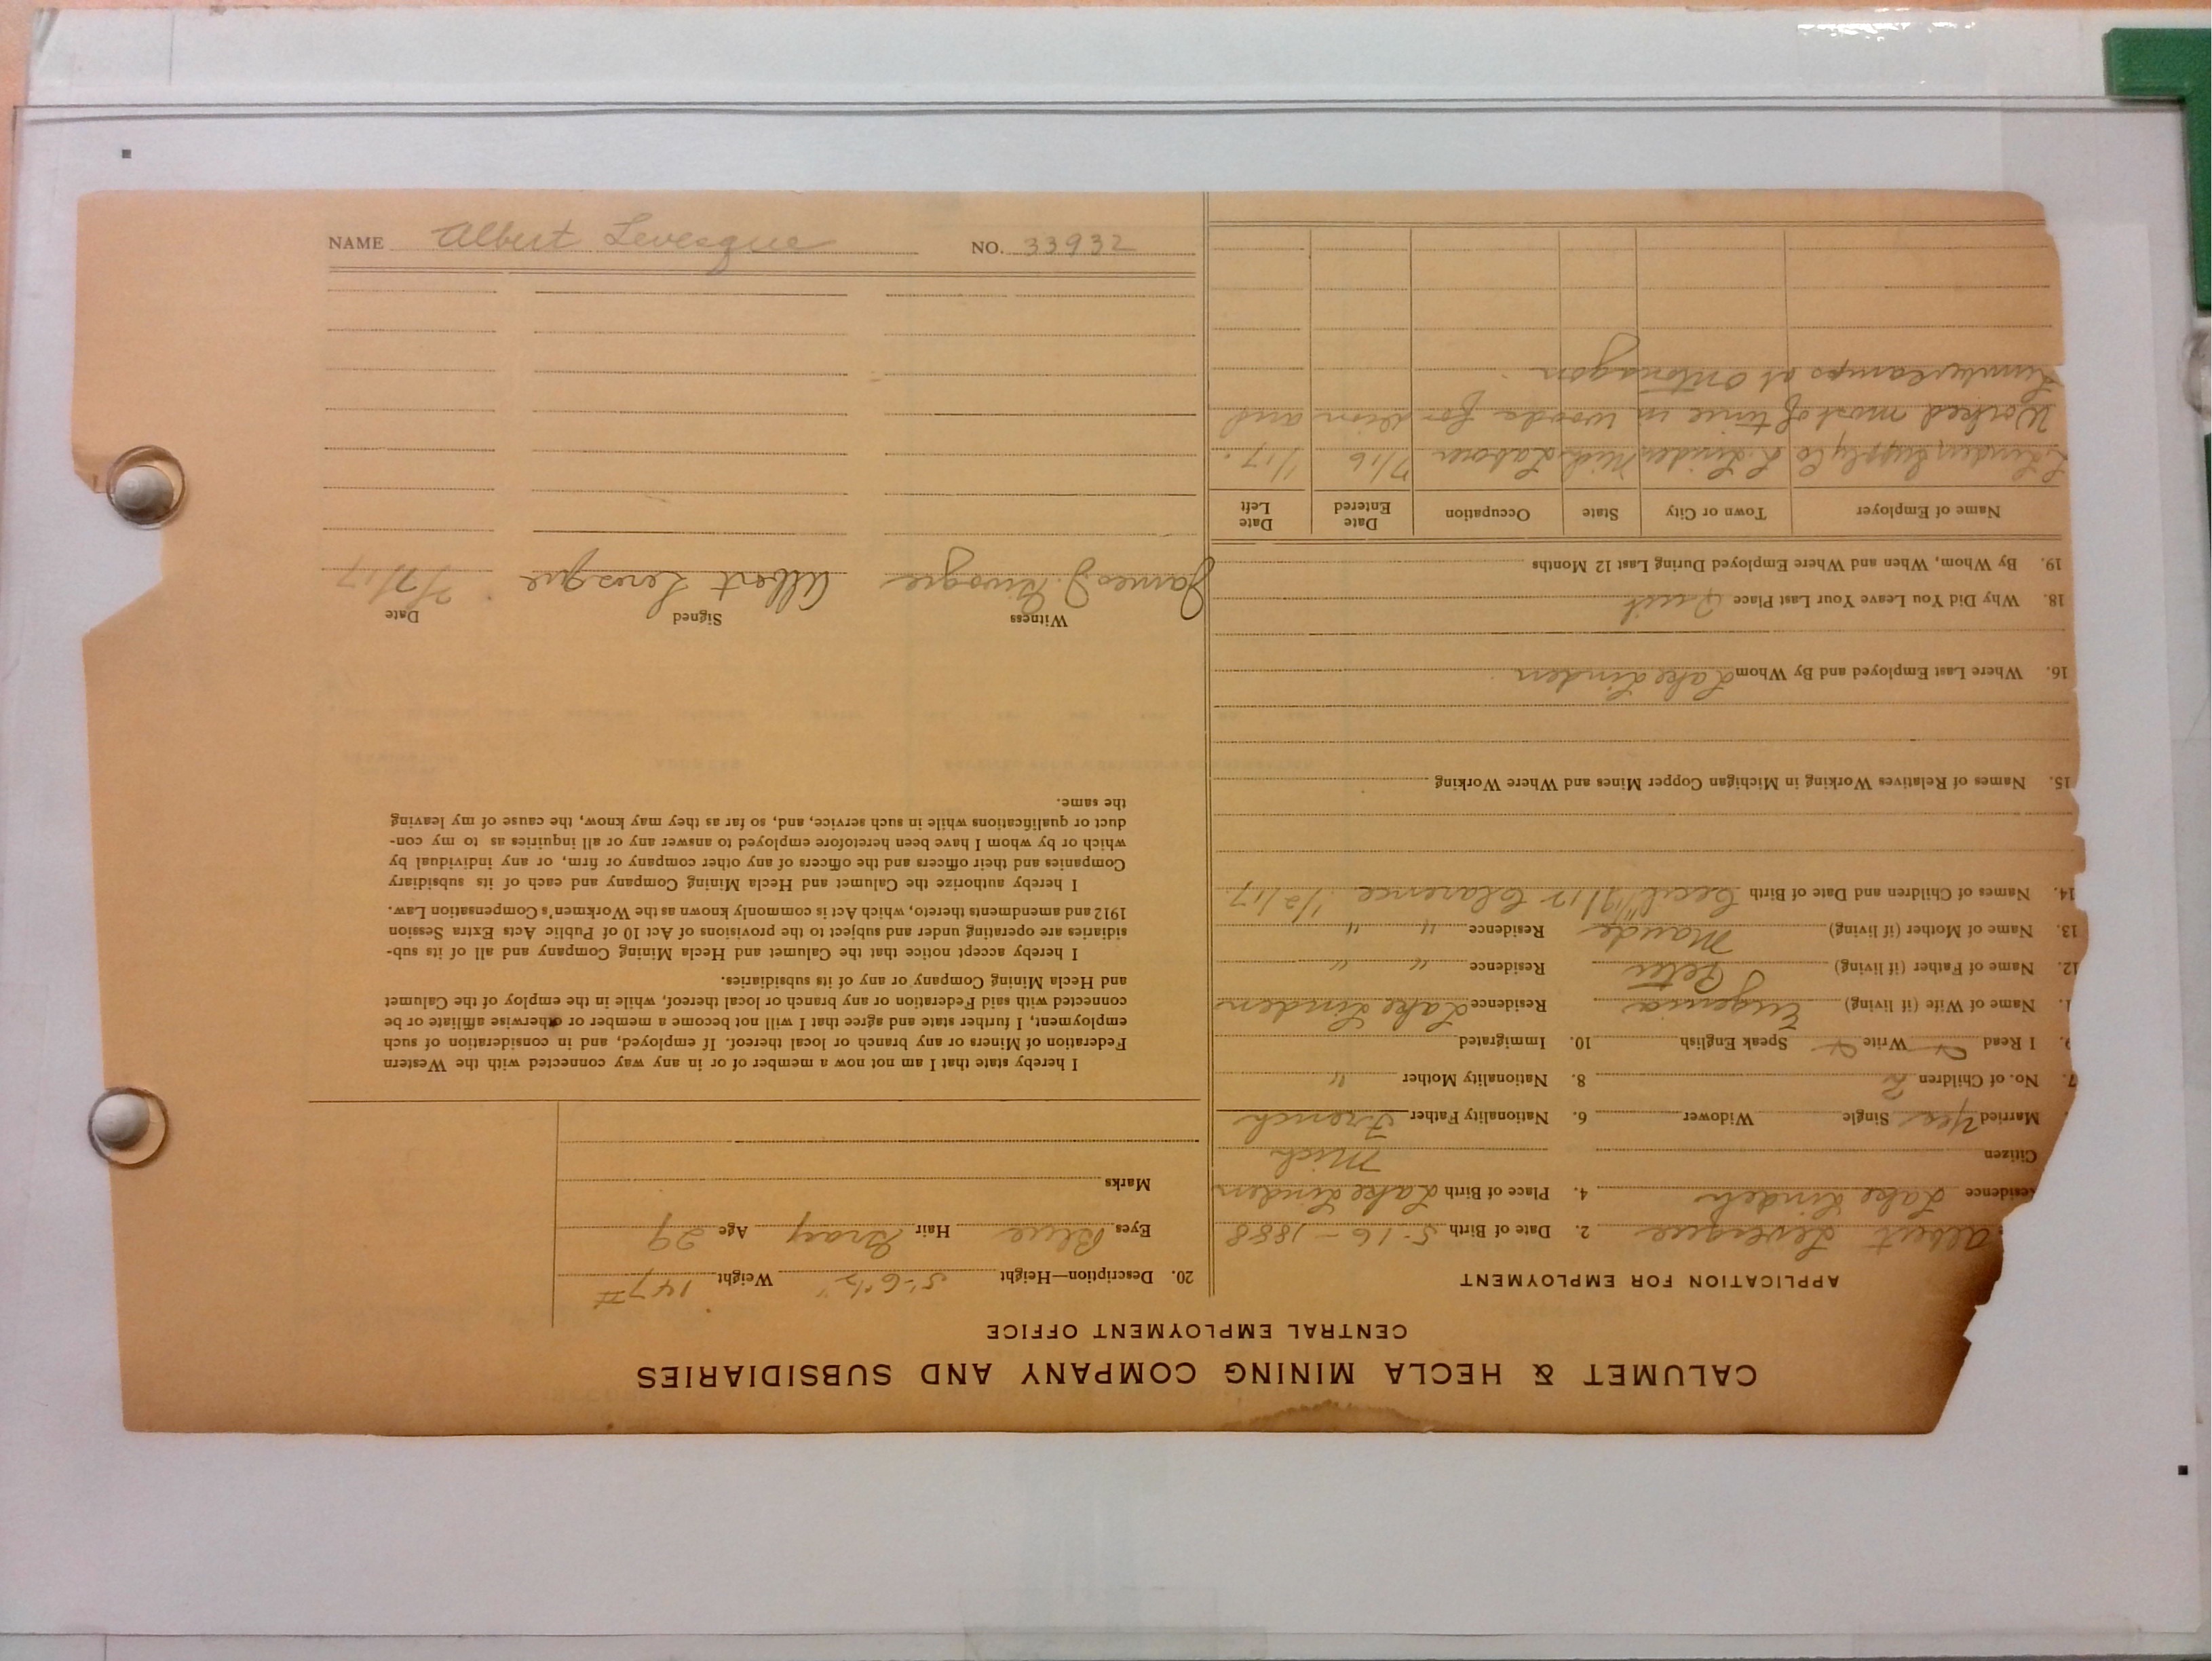 CALUMET & HECLA MINING COMPANY AND SUBSIDIARIES
CENTRAL EMPLOYMENT OFFICE
APPLICATION FOR EMPLOYMENT
Albert Levesque 2. Date of Birth 5-16-1888
Residence Lake Linden 4. Place of Birth Lake Linden
Citizen Mich
Married Yes Single Widower 6. Nationality Father French
7. No. of Children 2 8. Nationality Mother "
9. I Read Write Speak English 10. Immigrated
Name of Wife (if living) Eugenia Residence Lake Linden
12. Name of Father (if living) Peter Residence " "
13. Name of Mother (if living) Maude Residence " "
14. Names of Children and Date of Birth Cecil Clarence 1/2/17
15. Names of Relatives Working in Michigan Copper Mines and Where Working
16. Where Last Employed and By Whom Lake Linden
18. Why Did You Leave Your Last Place Quit
19. By Whom, When and Where Employed During Last 12 Months
Name of Employer Town or City State Occupation Date Entered Date Left
Linden Supply Co L. Linden Mich Labour 7/16 1/17.
Worked most of time in woods for him and
Lumber camps at Ontonagon
20. Description—Height 5-6½" Weight 147#
Eyes Blue Hair Gray Age 29
Marks
I hereby state that I am not now a member of or in any way connected with the Western
Federation of Miners or any branch or local thereof. If employed, and in consideration of such
employment, I further state and agree that I will not become a member or otherwise affiliate or be
connected with said Federation or any branch or local thereof, while in the employ of the Calumet
and Hecla Mining Company or any of its subsidiaries.
I hereby accept notice that the Calumet and Hecla Mining Company and all of its sub-
sidiaries are operating under and subject to the provisions of Act 10 of Public Acts Extra Session
1912 and amendments thereto, which Act is commonly known as the Workmen's Compensation Law.
I hereby authorize the Calumet and Hecla Mining Company and each of its subsidiary
Companies and their officers and the officers of any other company or firm, or any individual by
which or by whom I have been heretofore employed to answer any or all inquiries as to my con-
duct or qualifications while in such service, and, so far as they may know, the cause of my leaving
the same.
Witness Signed Date
James J. Albert Levesque 2/7/17
NAME Albert Levesque NO. 33932